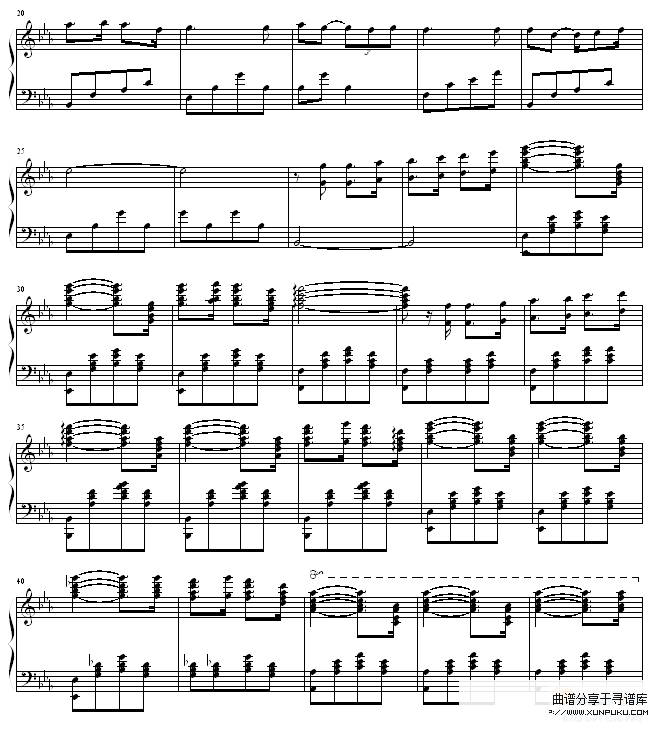 20
25
30
35
40
8
曲谱分享于寻谱库
?://WWW.XUNPUKU.COM